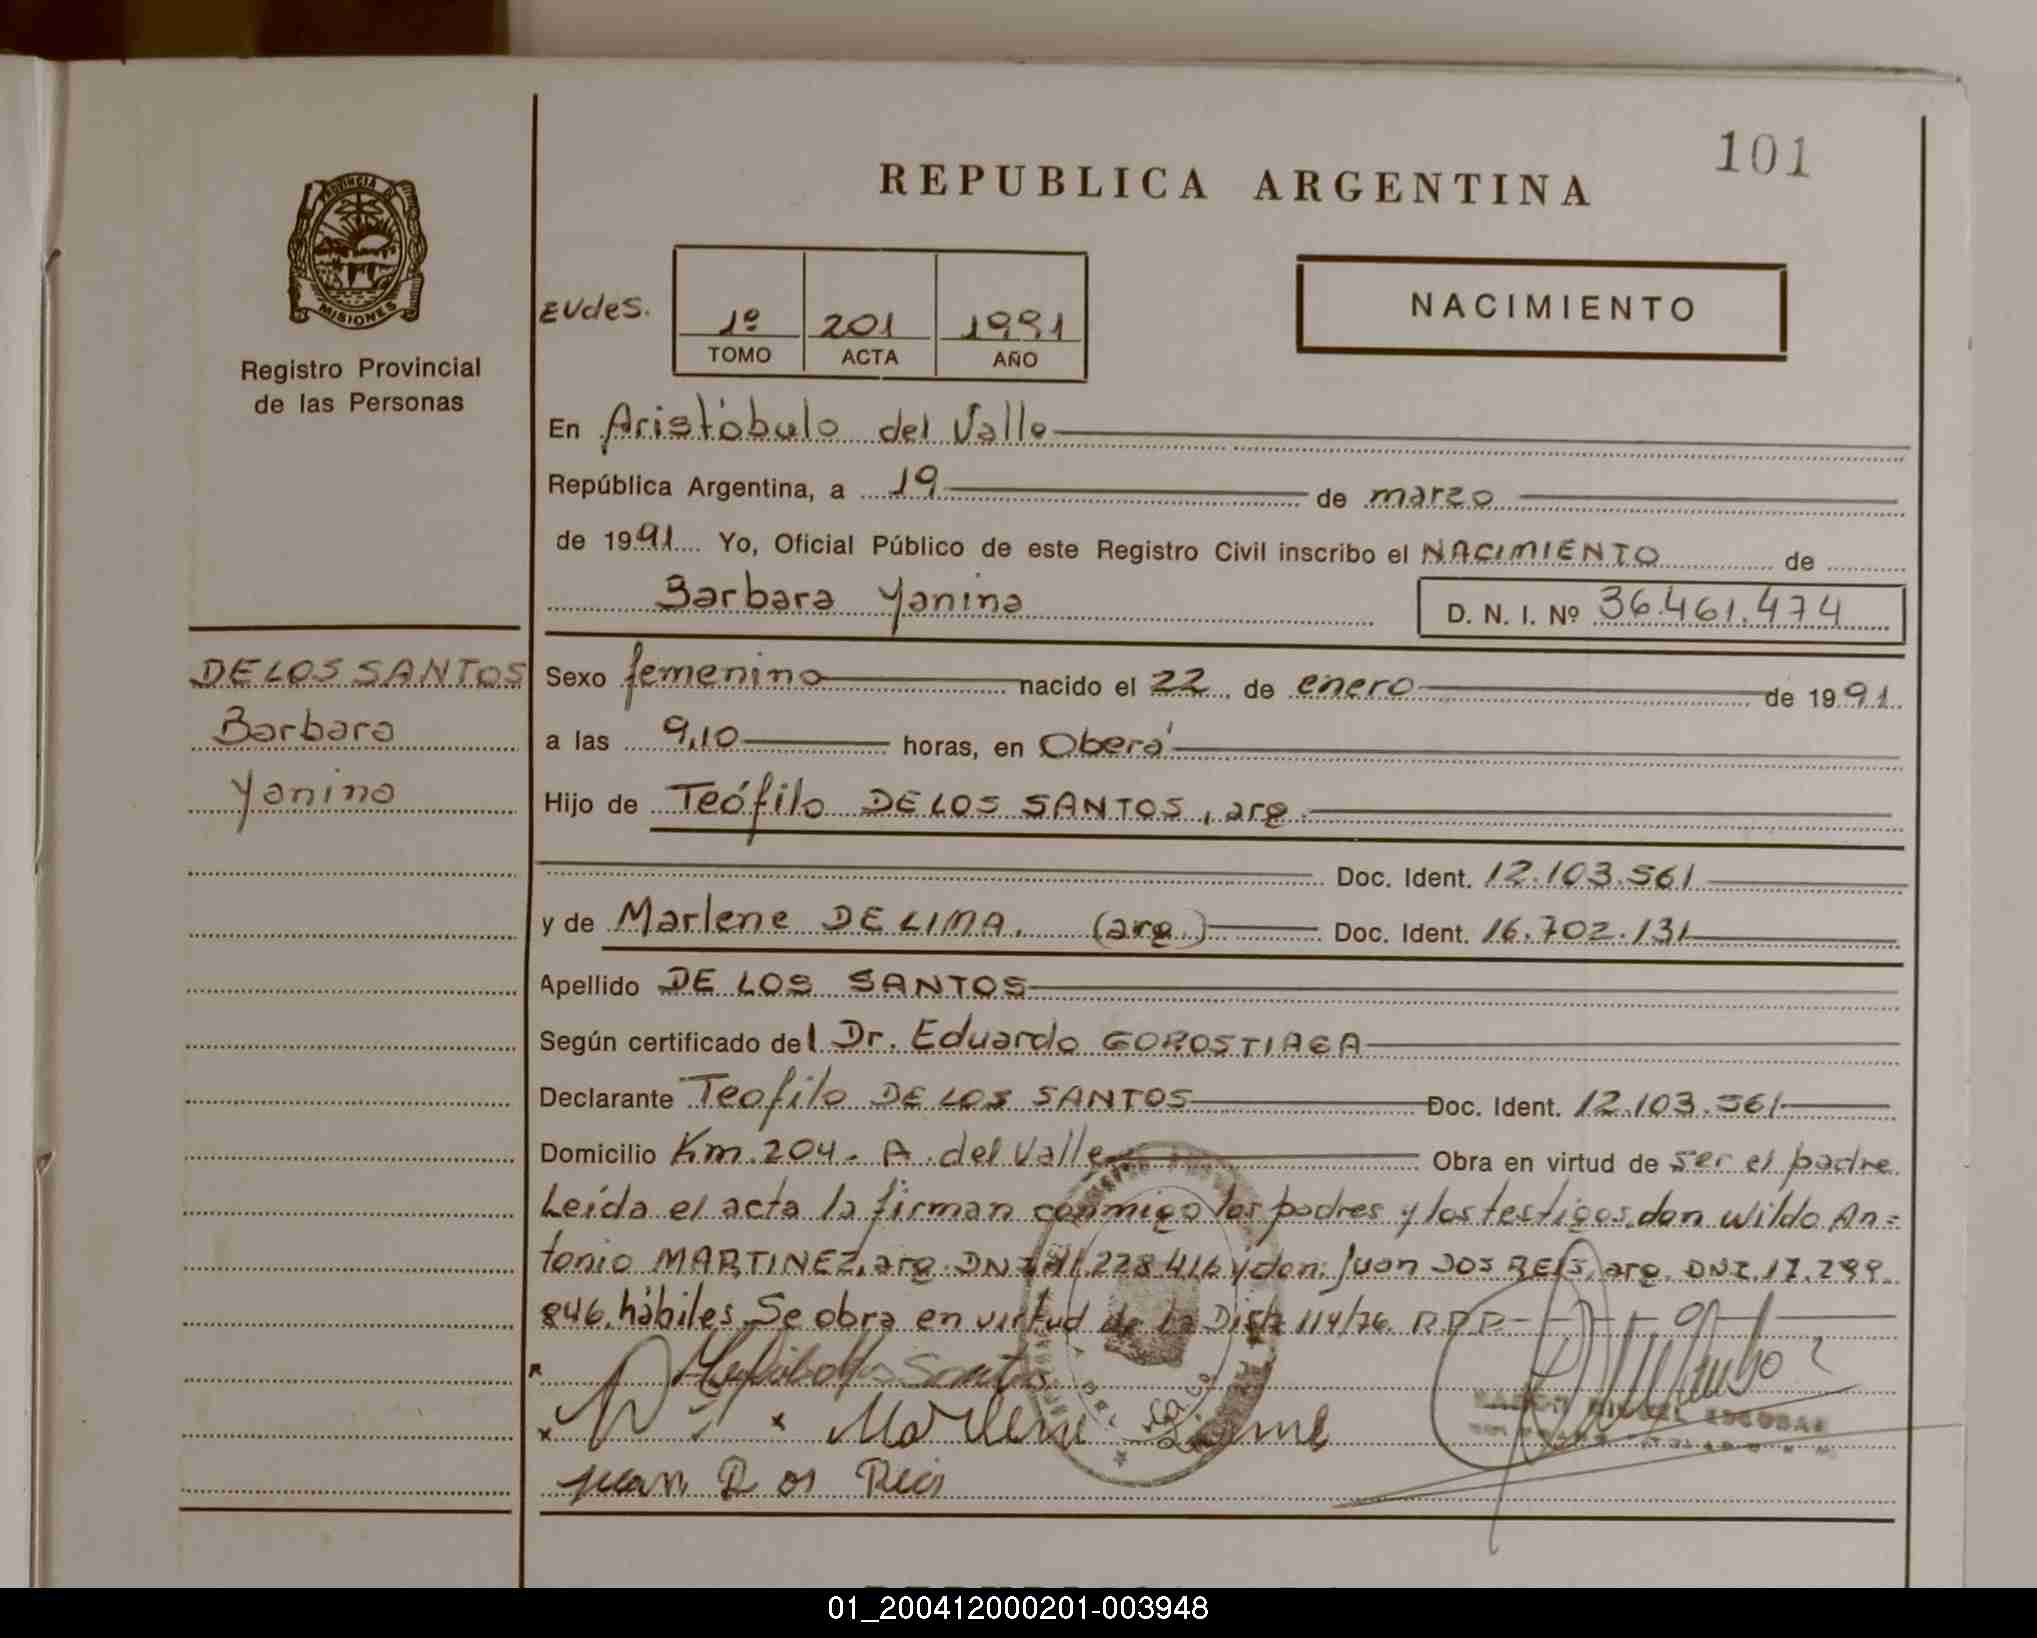 101
REPUBLICA ARGENTINA
PROVINCIA DE
MISIONES
Registro Provincial
de las Personas
Eudes.
1º 201 1991
TOMO ACTA AÑO
NACIMIENTO
En Aristóbulo del Valle
República Argentina, a 19 de marzo
de 1991 Yo, Oficial Público de este Registro Civil inscribo el NACIMIENTO de
Barbara Yanina D. N. I. Nº 36.461.474
DE LOS SANTOS
Barbara
Yanina
Sexo femenino nacido el 22 de enero de 1991
a las 9,10 horas, en Oberá
Hijo de Teófilo DE LOS SANTOS, arg.
Doc. Ident. 12.103.561
y de Marlene DE LIMA. (arg.) Doc. Ident. 16.702.131
Apellido DE LOS SANTOS
Según certificado del Dr. Eduardo GOROSTIAGA
Declarante Teofilo DE LOS SANTOS Doc. Ident. 12.103.561
Domicilio Km. 204. A. del Valle Obra en virtud de ser el padre.
Leída el acta la firman conmigo los padres y los testigos, don Wildo An=
tonio MARTINEZ, arg. DNI 11.228.416 y don Juan DOS REIS, arg. DNI. 17.299.
846, hábiles. Se obra en virtud de la Disp. 114/76. R.P.P.
Marlene Lima
Juan D os Reis
ESCOBAR
01_200412000201-003948